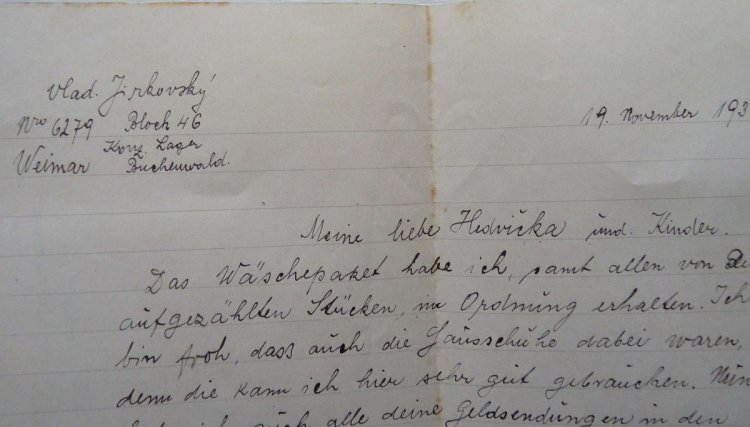 Vlad. Jirkovský
Nro 6279 Block 46
Konz. Lager
Weimar Buchenwald.
19. November 193
Meine liebe Hedvička und. Kinder.
Das Wäschepaket habe ich, samt allen von De
aufgezählten Stücken, in Ordnung erhalten. Ich
bin froh, dass auch die Hausschuhe dabei waren,
denn die kann ich hier sehr gut gebrauchen. Nun
ich auch alle deine Geldsendungen in den